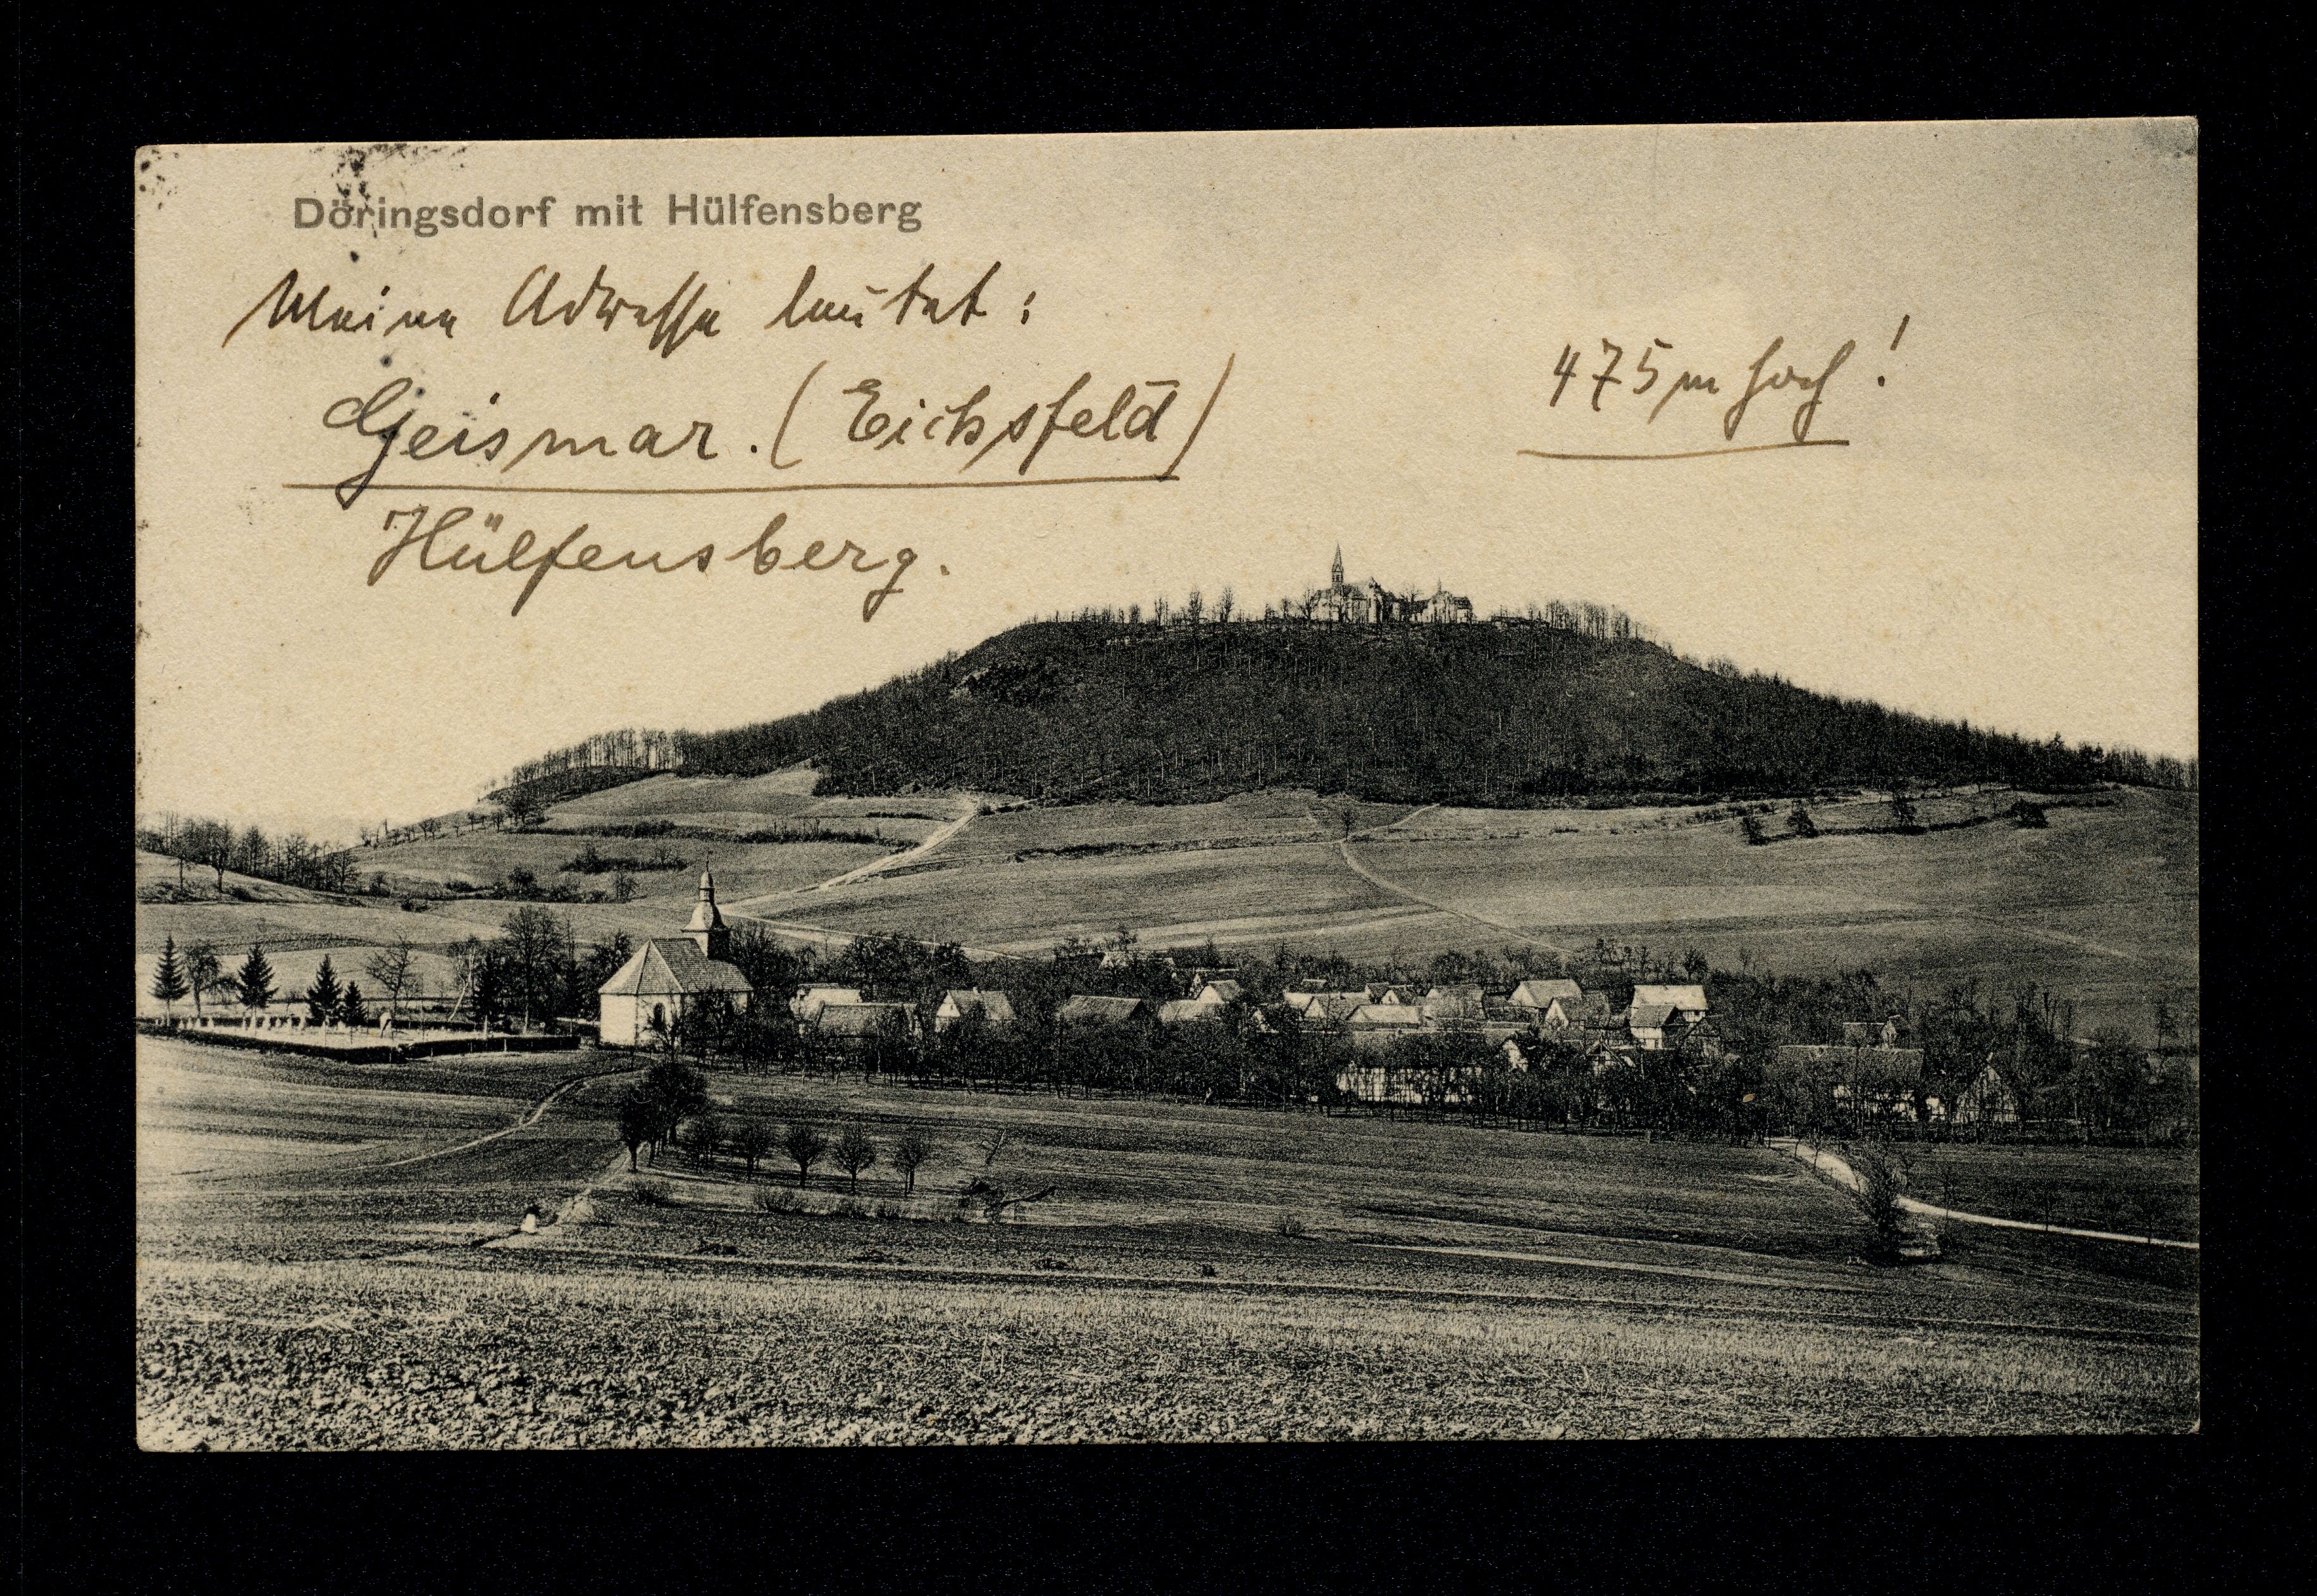 Döringsdorf mit Hülfensberg
Meine Adresse lautet:
Geismar. (Eichsfeld)
Hülfensberg.
475 m hoch!